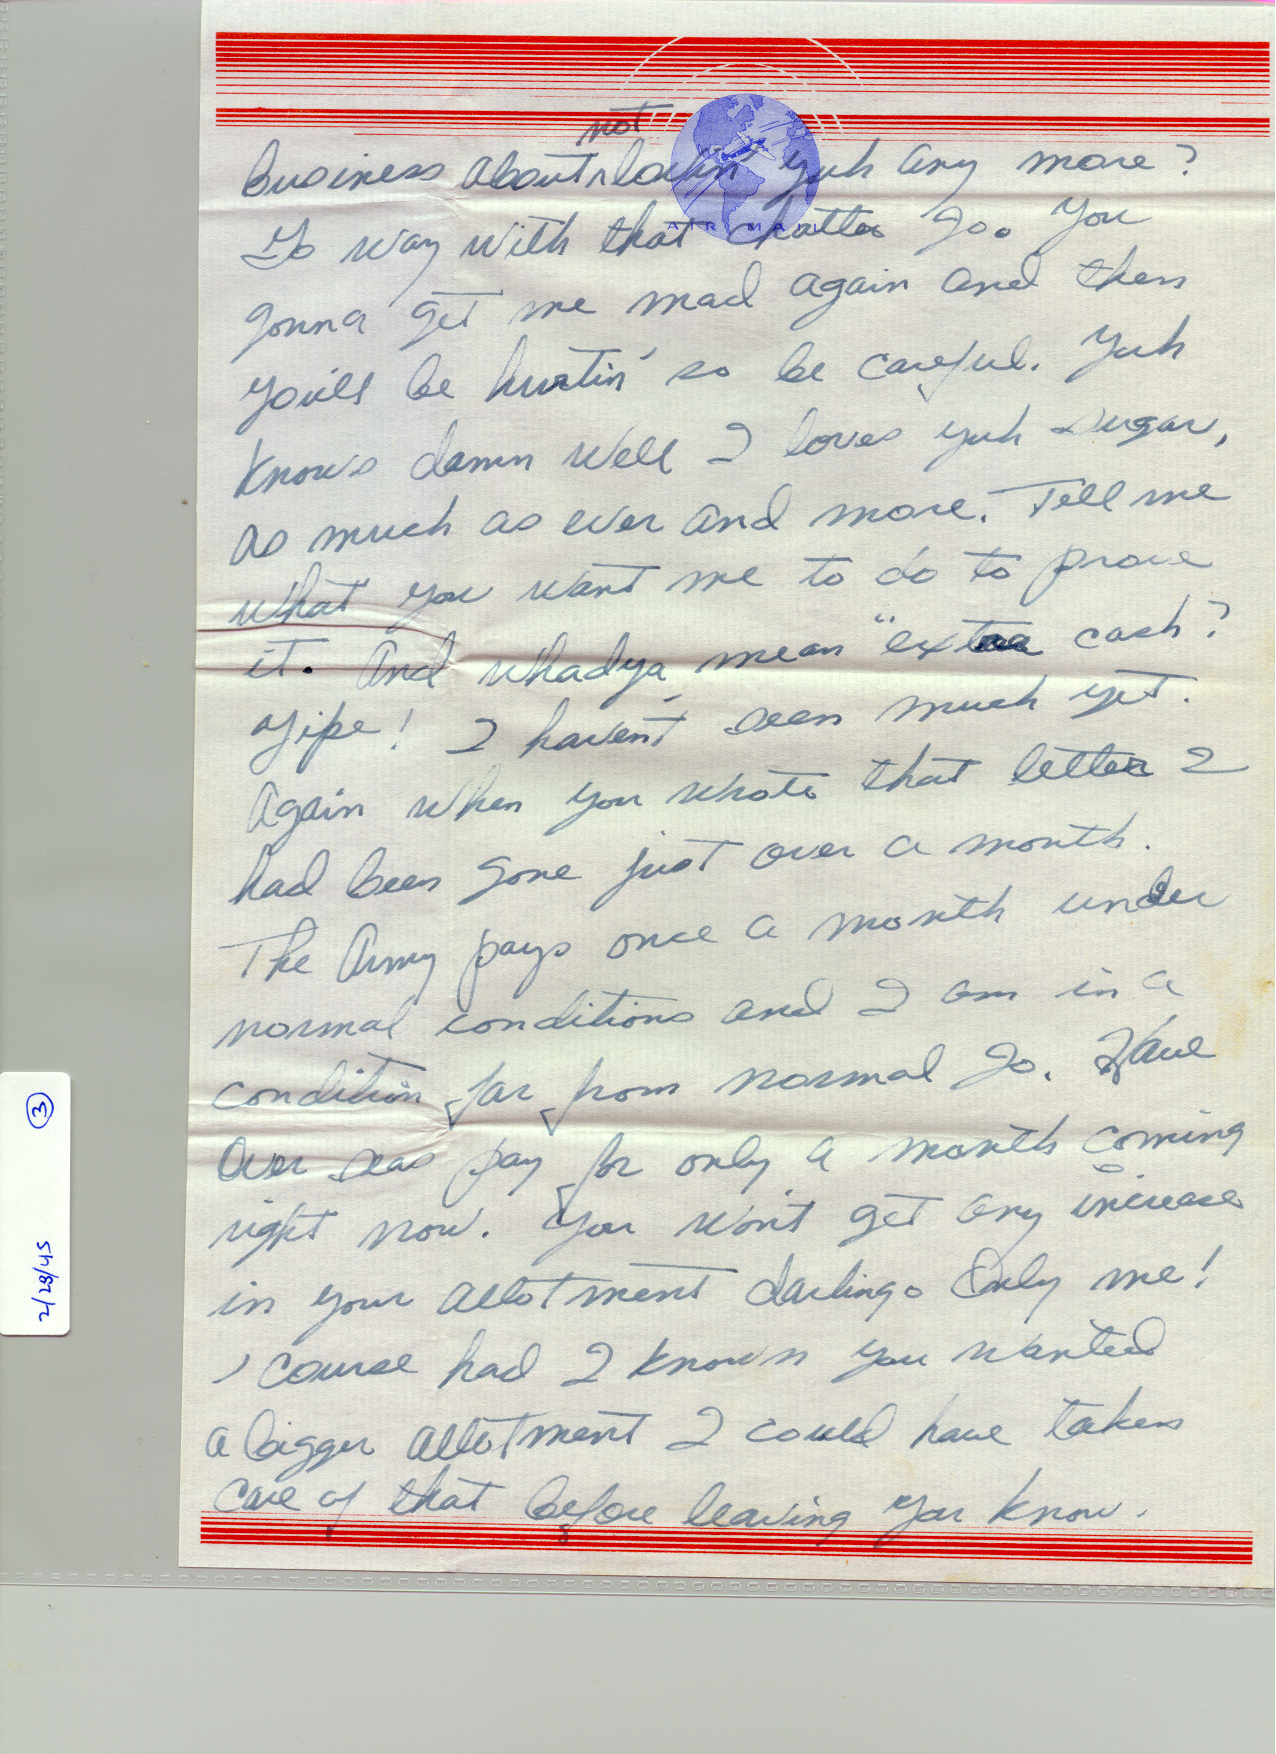 AIR MAIL
business about not lovin' yuh any more?
Go way with that chatter Jo. You
gonna get me mad again and then
you'll be hurtin' so be careful. Yuh
knows damn well I loves yuh sugar,
as much as ever and more. Tell me
what you want me to do to prove
it. And whadya mean "extra cash?
Yipe! I haven't seen much yet.
Again when you wrote that letter I
had been gone just over a month.
The Army pays once a month under
normal conditions and I am in a
condition far from normal Jo. Have
over seas pay for only a month coming
right now. You won't get any increase
in your allotment darling. Only me!
'course had I known you wanted
a bigger allotment I could have taken
care of that before leaving you know.
2/28/45 3